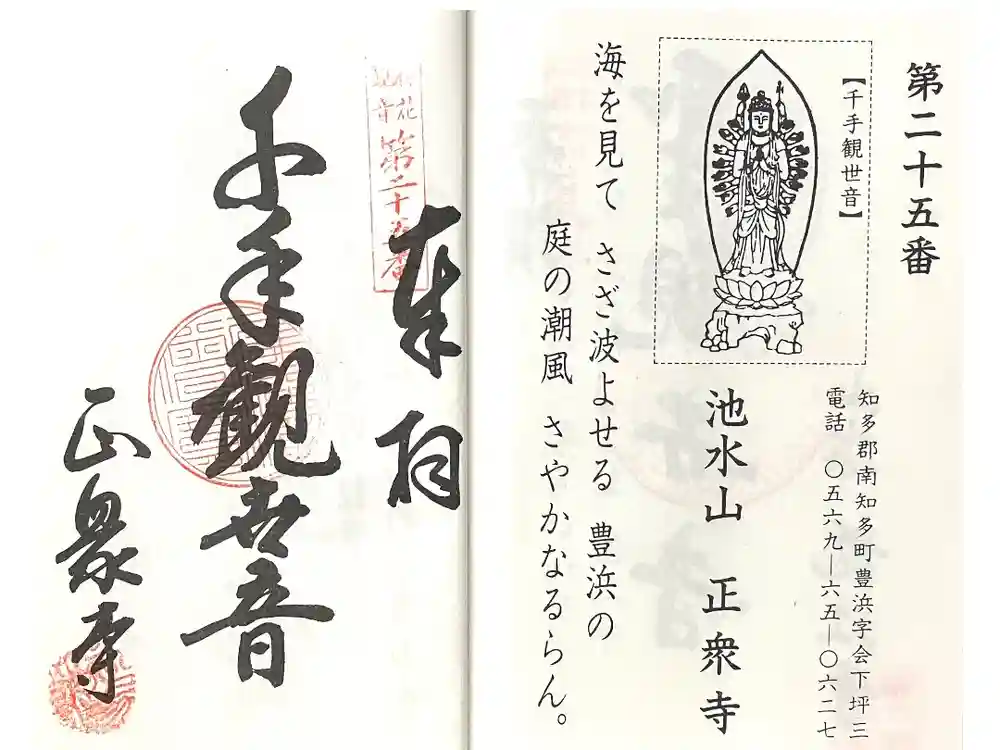 第二十五番
【千手観世音】
知多郡南知多町豊浜字会下坪三
電話　〇五六九―六五―〇六二七
池水山　正衆寺
海を見て　さざ波よせる　豊浜の
庭の潮風　さやかなるらん。
奉拝
第二十五番
千手觀世音
正衆寺